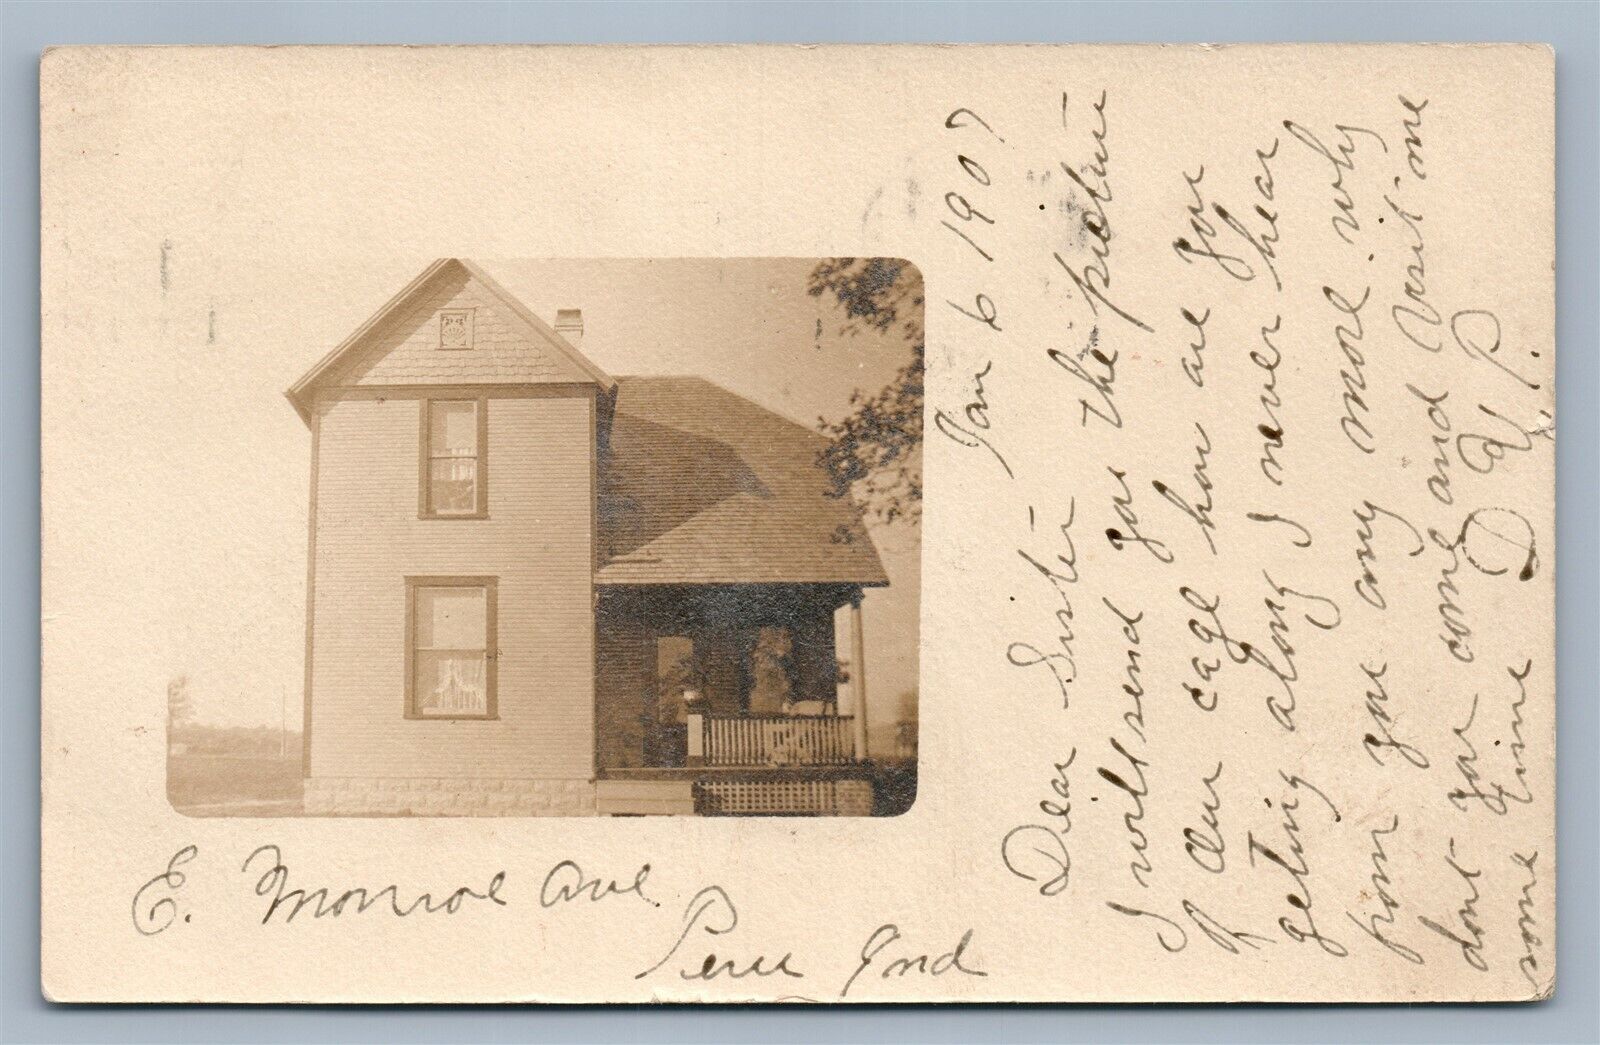 Jan 6 1907
Dear Sister
I will send you the picture
of our cage how are you
geting along I never hear
from you any more. why
dont you come and visit me
some time D. P.
E. Monroe Ave
Peru Ind